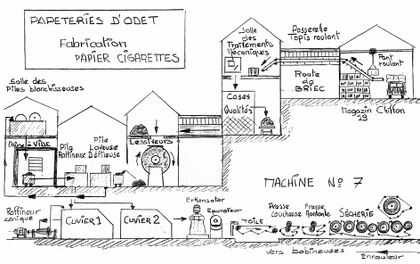 PAPETERIES D'ODET
Fabrication
PAPIER CIGARETTES
Salle des
Traitements
Mécaniques
Passerelle
Tapis roulant
Pont
roulant
Salle des
Piles blanchisseuses
Cases
Qualités
Route de
BRIEC
Magazin Chiffon
19
VIDE
Pile
Raffineux
Pile
Laveuse
Défileuse
Lessiveurs
MACHINE No 7
Raffineur
conique
CUVIER 1
CUVIER 2
Epurateur
TOILE
Presse
Coucheuse
Presse
Montante
SÈCHERIE
Vers Bobineuses
Enrouleur